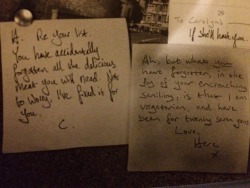 H. Re your list.
You have accidentally
forgotten all the delicious
meat you will need. Not
to worry, I've fixed it for
you.
C.
To Carolyn
If she'll have you.
Ah, but what you
have forgotten, in the
fog of your encroaching
senility, is that I'm
vegetarian, and have
been for twenty seven years
Love,
Herc
x